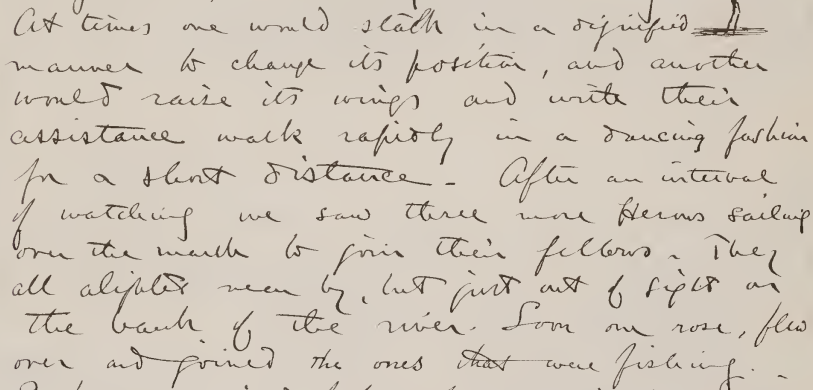 At times one would stalk in a dignified
manner to change its position, and another
would raise its wings and with their
assistance walk rapidly in a dancing fashion
for a short distance - After an interval
of watching we saw three more Herons sailing
over the marsh to join their fellows. They
all alighted near by, but just out of sight on
the bank of the river. Soon one rose, flew
over and joined the ones that were fishing. -